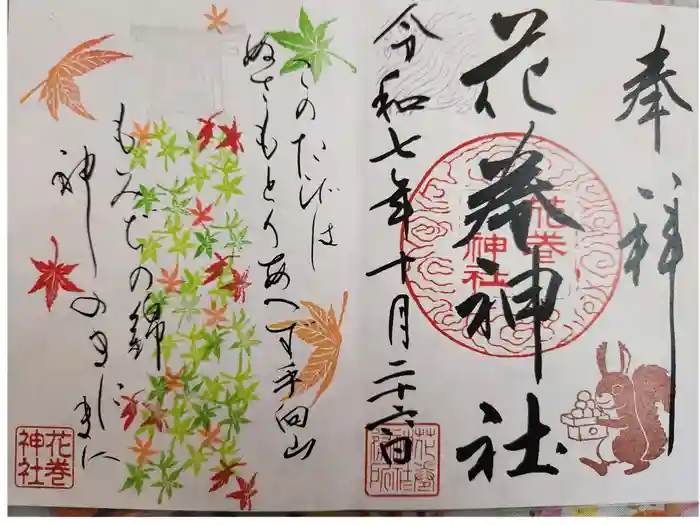 奉拝
花巻神社
花巻
神社
令和七年十月二十六日
このたびは
ぬさもとりあへず手向山
もみぢの錦
神のまにまに
花巻
神社